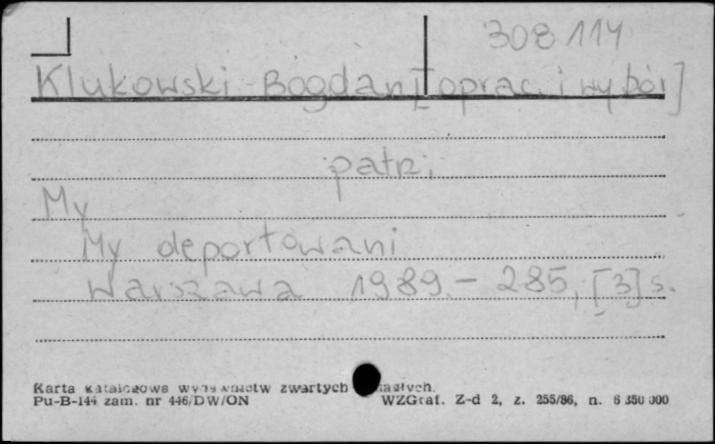 308114
Klukowski Bogdan [oprac. i wybór]
patrz
My
My deportowani
Warszawa 1989.- 285, [3] s.
Karta katalogowa wydawnictw zwartych
Pu-B-144 zam. nr 446/DW/ON WZGraf. Z-d 2, z. 255/86, n. 6 350 000